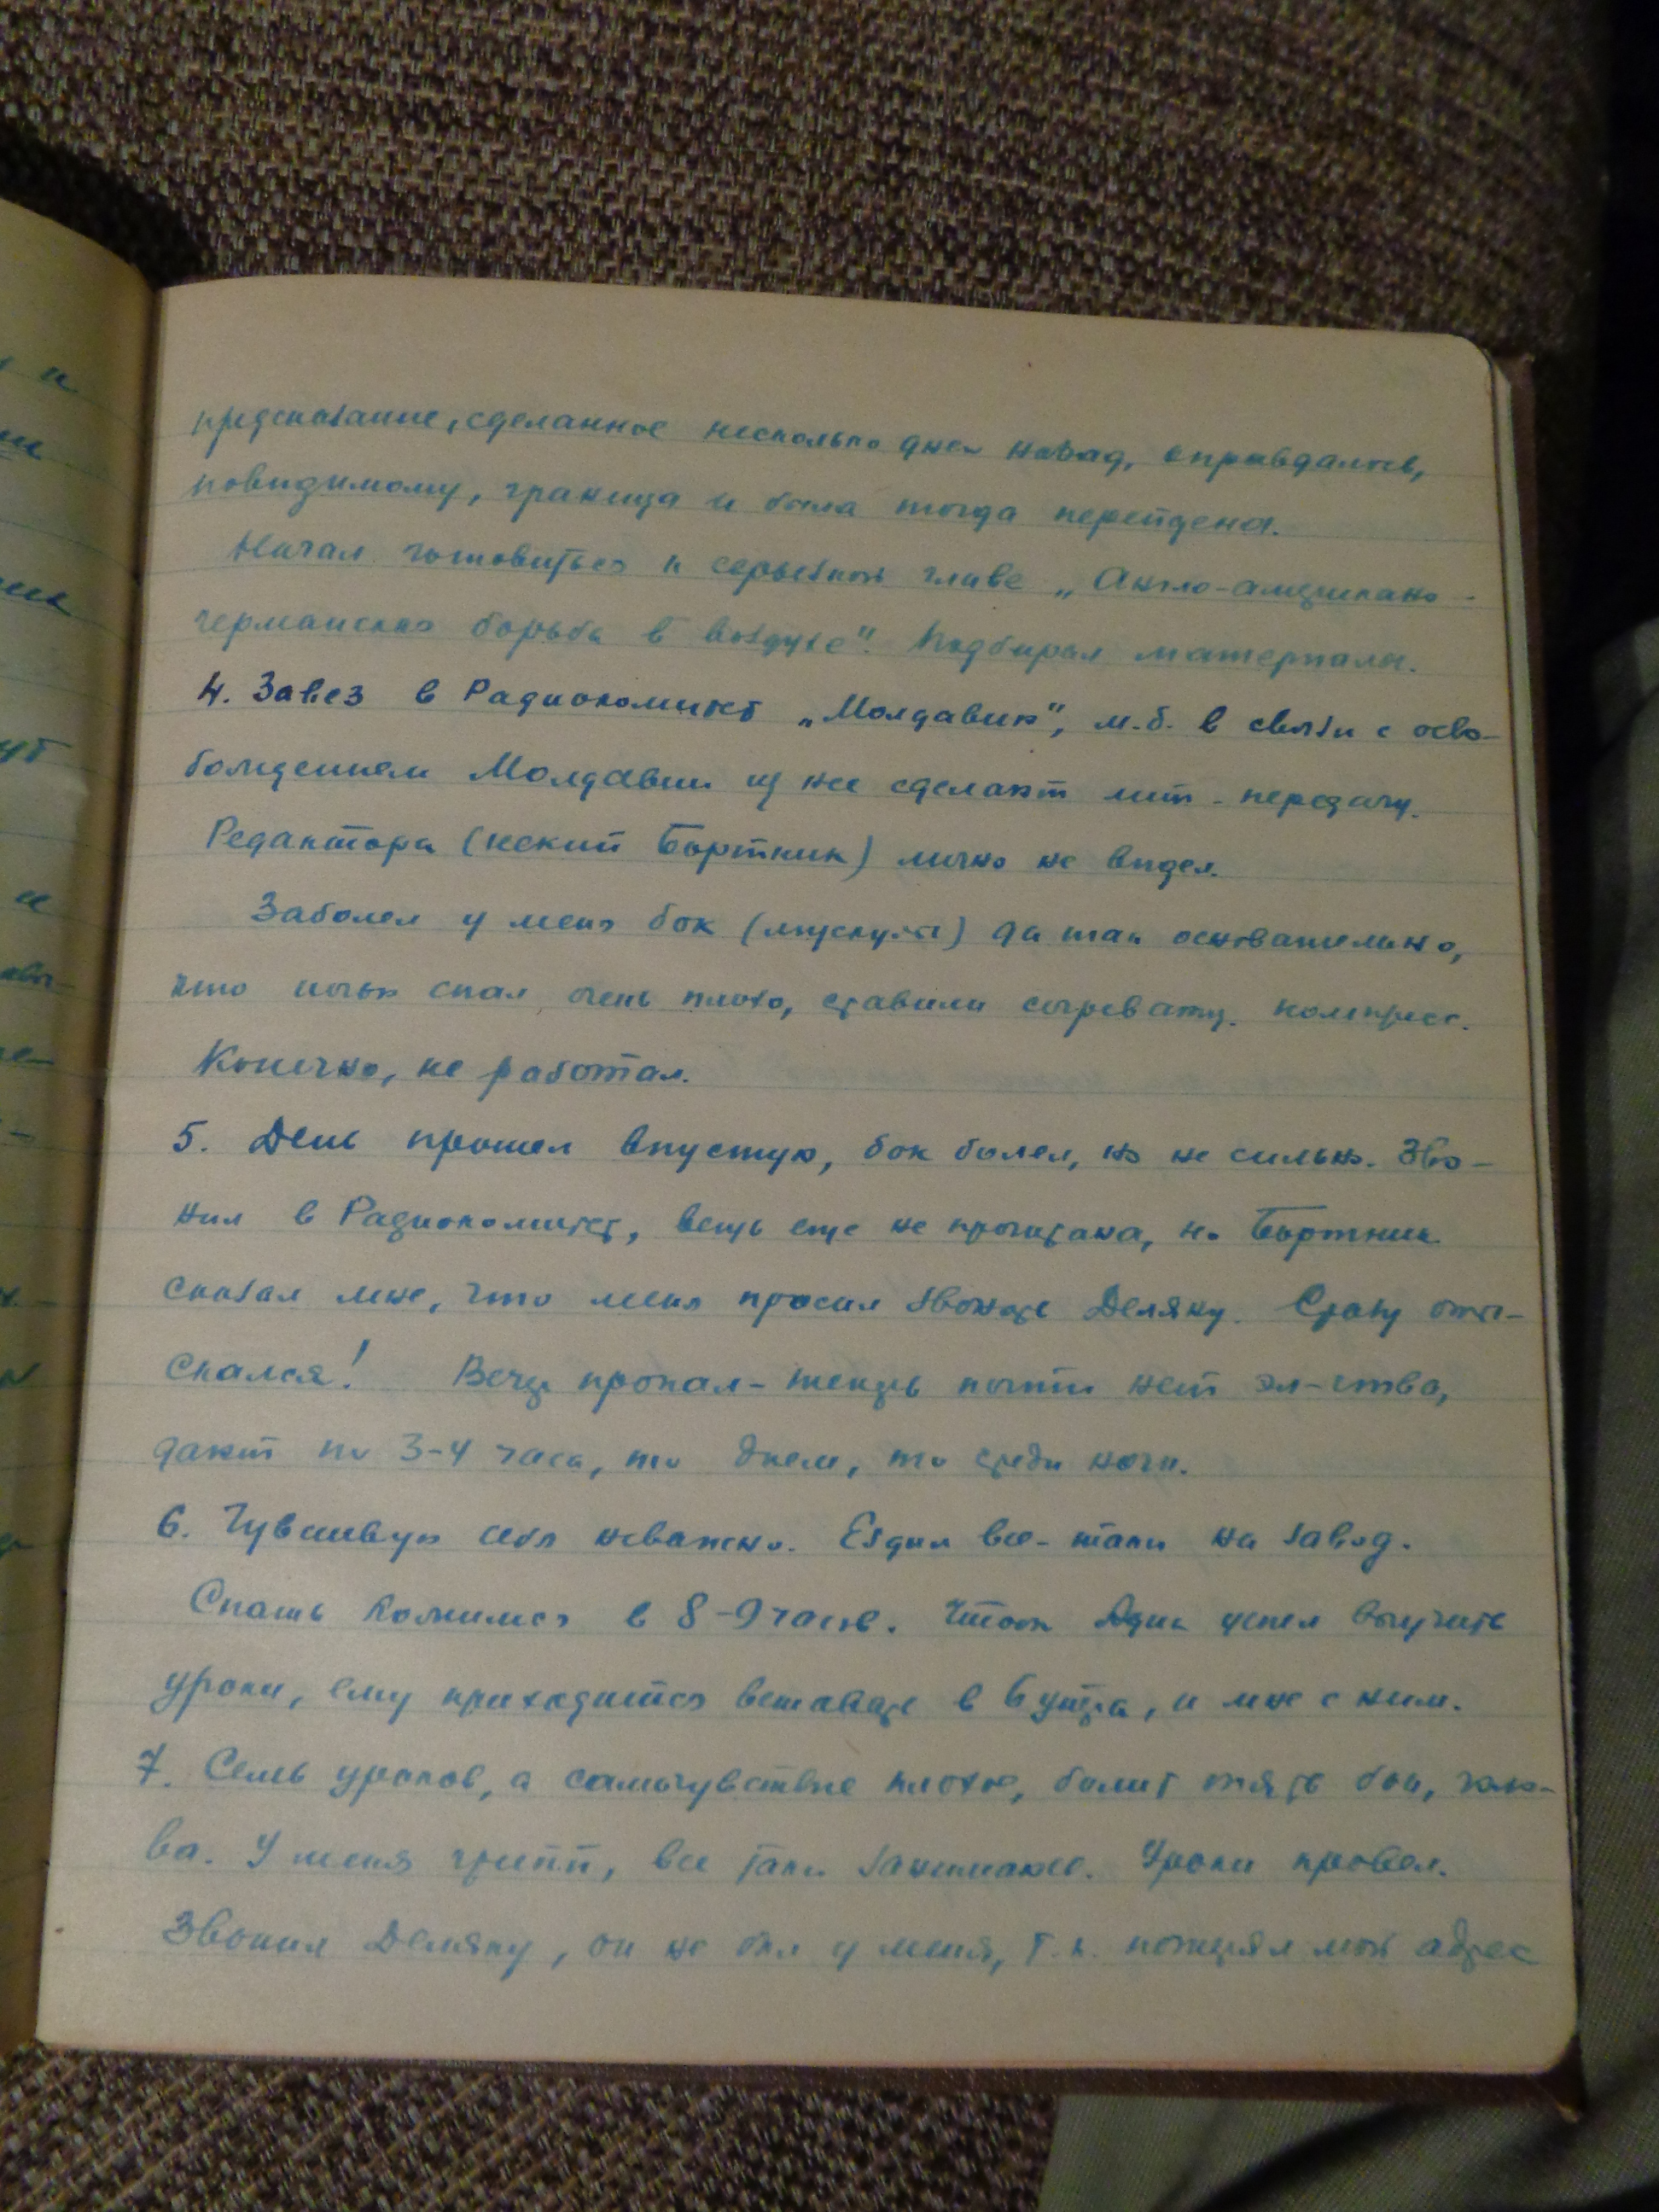 предсказание, сделанное несколько дней назад, оправдалось,
повидимому, граница и была тогда перейдена.
Начал готовиться к серьезной главе „Англо-американо-
германская борьба в воздухе". Подбирал материалы.
4. Завез в Радиокомитет „Молдавию", м.б. в связи с осво-
бождением Молдавии из нее сделают лит-передачу.
Редактора (некий Бортник) лично не видел.
Заболел у меня бок (мускулы) да так основательно,
что ночью спал очень плохо, ставили согревающ. компресс.
Конечно, не работал.
5. День прошел впустую, бок болел, но не сильно. Зво-
нил в Радиокомитет, вещь еще не прочитана, но Бортник
сказал мне, что меня просил звонить Деляну. Сразу оты-
скался! Вечер пропал - теперь почти нет эл-ства,
дают по 3-4 часа, то днем, то среди ночи.
6. Чувствую себя неважно. Ездил все-таки на завод.
Спать ложимся в 8-9 часов. Чтобы Адик успел выучить
уроки, ему приходится вставать в 6 утра, и мне с ним.
7. Семь уроков, а самочувствие плохое, болит опять бок, голо-
ва. У меня грипп, все таки занимаюсь. Уроки провел.
Звонил Деляну, он не был у меня, т.к. потерял мой адрес